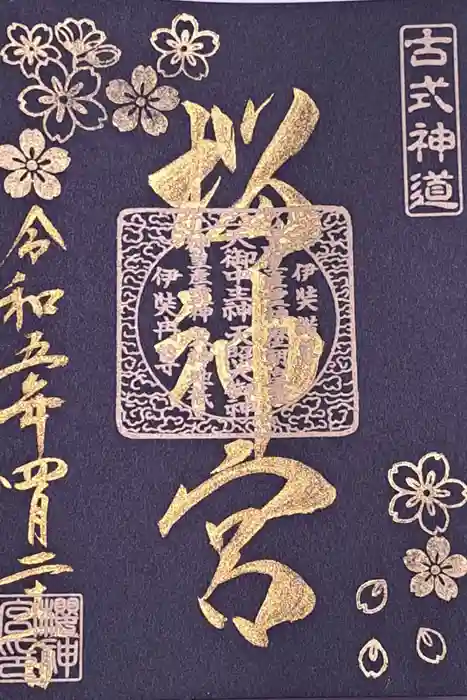 古式神道
桜神宮
伊奘諾尊
天御中主神 天照大御神
伊奘冉尊
令和五年四月
櫻神
宮印